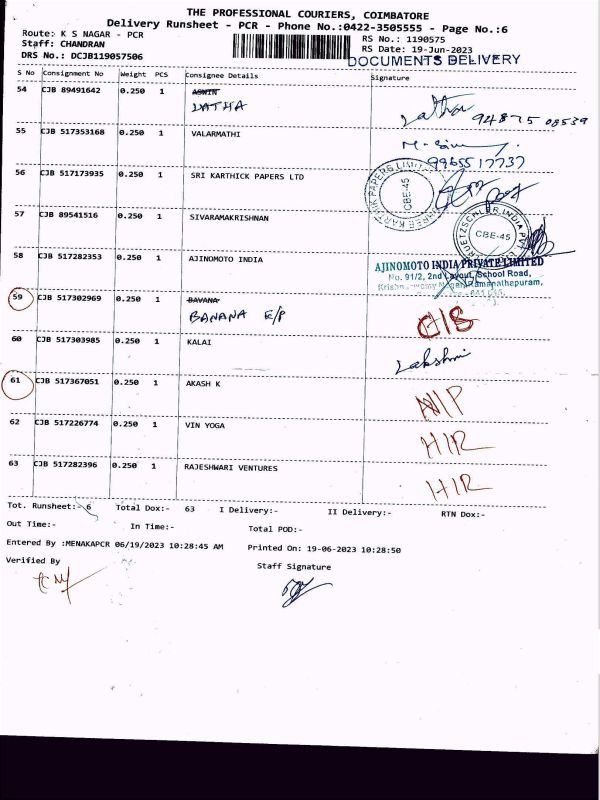 THE PROFESSIONAL COURIERS, COIMBATORE
Delivery Runsheet - PCR - Phone No.:0422-3505555 - Page No.:6
Route: K S NAGAR - PCR
RS No.: 1190575
Staff: CHANDRAN
RS Date: 19-Jun-2023
DRS No.: DCJB119057506
DOCUMENTS DELIVERY
S No Consignment No Weight PCS Consignee Details Signature
54 CJB 89491642 0.250 1 ASWIN
LATHA
Latha 94875 08539
55 CJB 517353168 0.250 1 VALARMATHI
9965517737
56 CJB 517173935 0.250 1 SRI KARTHICK PAPERS LTD
CBE-45
57 CJB 89541516 0.250 1 SIVARAMAKRISHNAN
CBE-45
58 CJB 517282353 0.250 1 AJINOMOTO INDIA
AJINOMOTO INDIA PRIVATE LIMITED
No. 91/2, 2nd Layout, School Road,
Ramanathapuram,
59 CJB 517302969 0.250 1 BAVANA
BANANA E/P
60 CJB 517303985 0.250 1 KALAI
Lakshmi
61 CJB 517367051 0.250 1 AKASH K
62 CJB 517226774 0.250 1 VIN YOGA
HIR
63 CJB 517282396 0.250 1 RAJESHWARI VENTURES
HIR
Tot. Runsheet:- 6 Total Dox:- 63 I Delivery:- II Delivery:- RTN Dox:-
Out Time:- In Time:- Total POD:-
Entered By :MENAKAPCR 06/19/2023 10:28:45 AM Printed On: 19-06-2023 10:28:50
Verified By Staff Signature